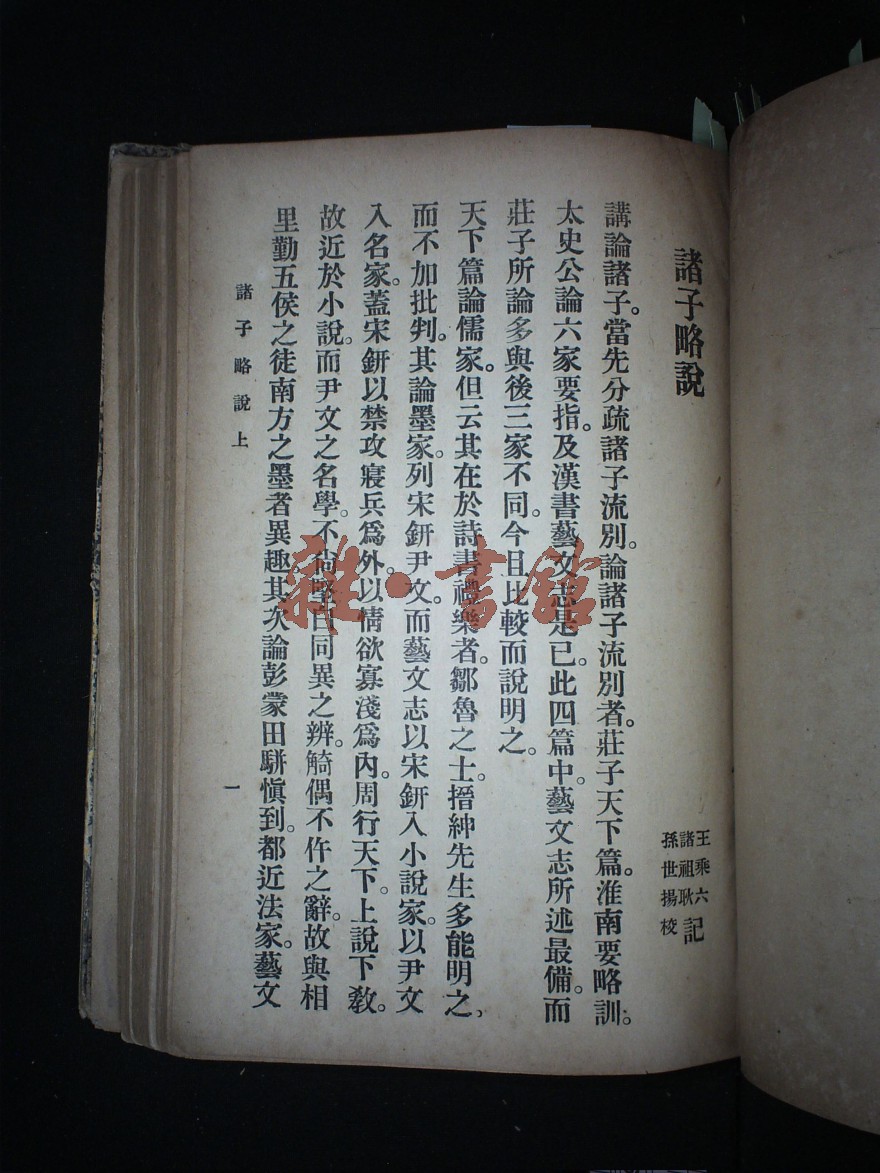 諸子略說
王乘六
諸祖耿
記
孫世揚校
講論諸子。當先分疏諸子流別。論諸子流別者。莊子天下篇。淮南要略訓。
太史公論六家要指。及漢書藝文志是已。此四篇中。藝文志所述最備。而
莊子所論多與後三家不同。今且比較而說明之。
天下篇論儒家。但云其在於詩書禮樂者。鄒魯之士。搢紳先生多能明之、
而不加批判。其論墨家。列宋鈃尹文。而藝文志以宋鈃入小說家。以尹文
入名家。蓋宋鈃以禁攻寢兵爲外。以情欲寡淺爲內。周行天下。上說下教。
故近於小說。而尹文之名學。不尚堅白同異之辨。觭偶不仵之辭。故與相
里勤五侯之徒南方之墨者異趣。其次論彭蒙田駢愼到。都近法家。藝文
諸子略說上
一
雜·書館